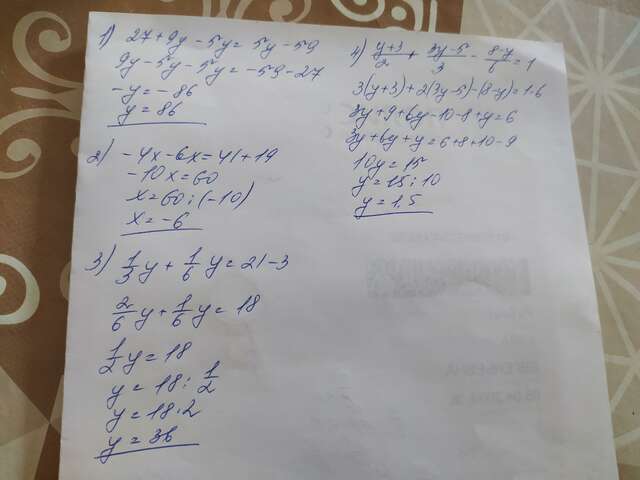 1) 27+9y-5y=5y-59
9y-5y-5y=-59-27
-y=-86
y=86
2) -4x-6x=41+19
-10x=60
x=60:(-10)
x=-6
3) 1/3 y + 1/6 y = 21-3
2/6 y + 1/6 y = 18
1/2 y = 18
y = 18 : 1/2
y = 18·2
y = 36
4) (y+3)/2 + (3y-5)/3 - (8-y)/6 = 1
3(y+3)+2(3y-5)-(8-y)=1·6
3y+9+6y-10-8+y=6
3y+6y+y=6+8+10-9
10y=15
y=15:10
y=1.5